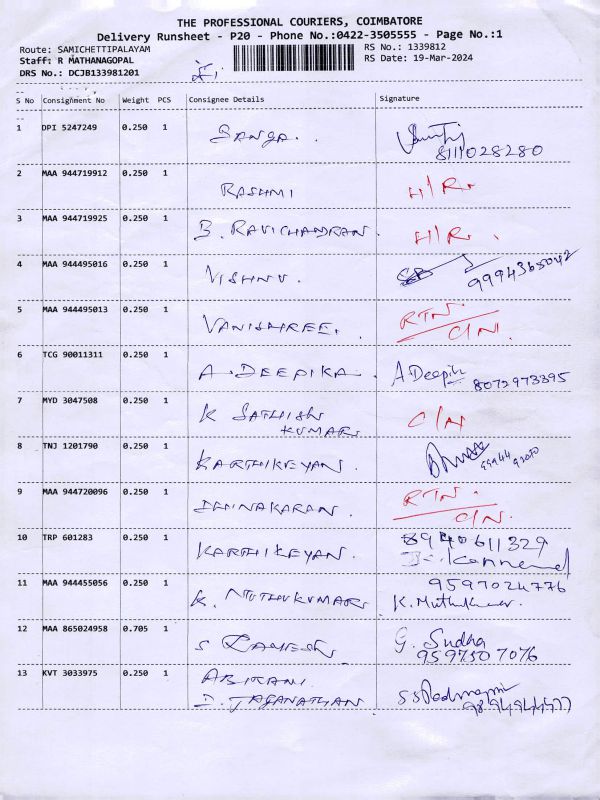 THE PROFESSIONAL COURIERS, COIMBATORE
Delivery Runsheet - P20 - Phone No.:0422-3505555 - Page No.:1
Route: SAMICHETTIPALAYAM RS No.: 1339812
Staff: R MATHANAGOPAL RS Date: 19-Mar-2024
DRS No.: DCJB133981201
S No Consignment No Weight PCS Consignee Details Signature
1 DPI 5247249 0.250 1 SANGA.
8111028280
2 MAA 944719912 0.250 1 RASHMI H/R.
3 MAA 944719925 0.250 1 B. RAVICHANDRAN. H/R.
4 MAA 944495016 0.250 1 VISHNU. 9994365042
5 MAA 944495013 0.250 1 VANISHREE. RTN.
C/N.
6 TCG 90011311 0.250 1 A. DEEPIKA A Deepik 8072973395
7 MYD 3047508 0.250 1 K SATHISH C/N
KUMAR.
8 TNJ 1201790 0.250 1 KARTHIKEYAN.
9 MAA 944720096 0.250 1 DHINAKARAN. RTN.
C/N.
10 TRP 601283 0.250 1 KARTHIKEYAN. 8940611329
11 MAA 944455056 0.250 1 K. MUTHUKUMAR 9597024776
K. Muthukumar.
12 MAA 865024958 0.705 1 S RAMESH G. Sudha
9597507076
13 KVT 3033975 0.250 1 ABIRAMI.
D. JAGANATHAN